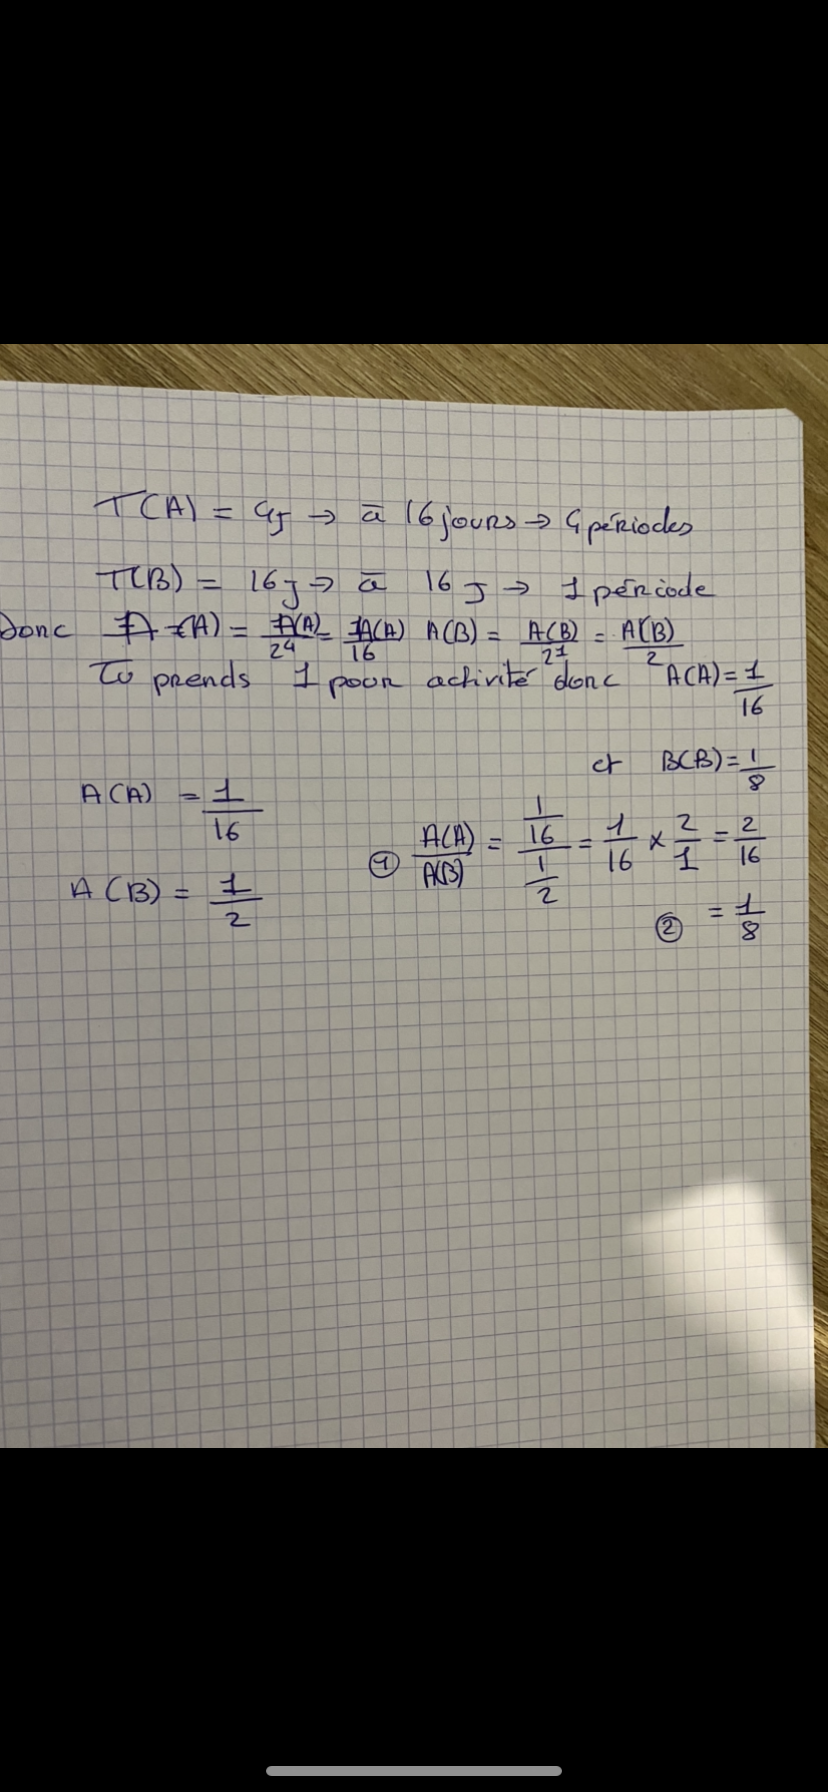 T(A) = 4j → à 16 jours → 4 périodes
T(B) = 16 j → à 16 j → 1 période
Donc A (A) = A(A)/2^4 = A(A)/16 A(B) = A(B)/2^1 = A(B)/2
Tu prends 1 pour activité donc A(A) = 1/16
et B(B) = 1/8
A(A) = 1/16
A(B) = 1/2
① A(A)/A(B) = (1/16)/(1/2) = 1/16 × 2/1 = 2/16
② = 1/8